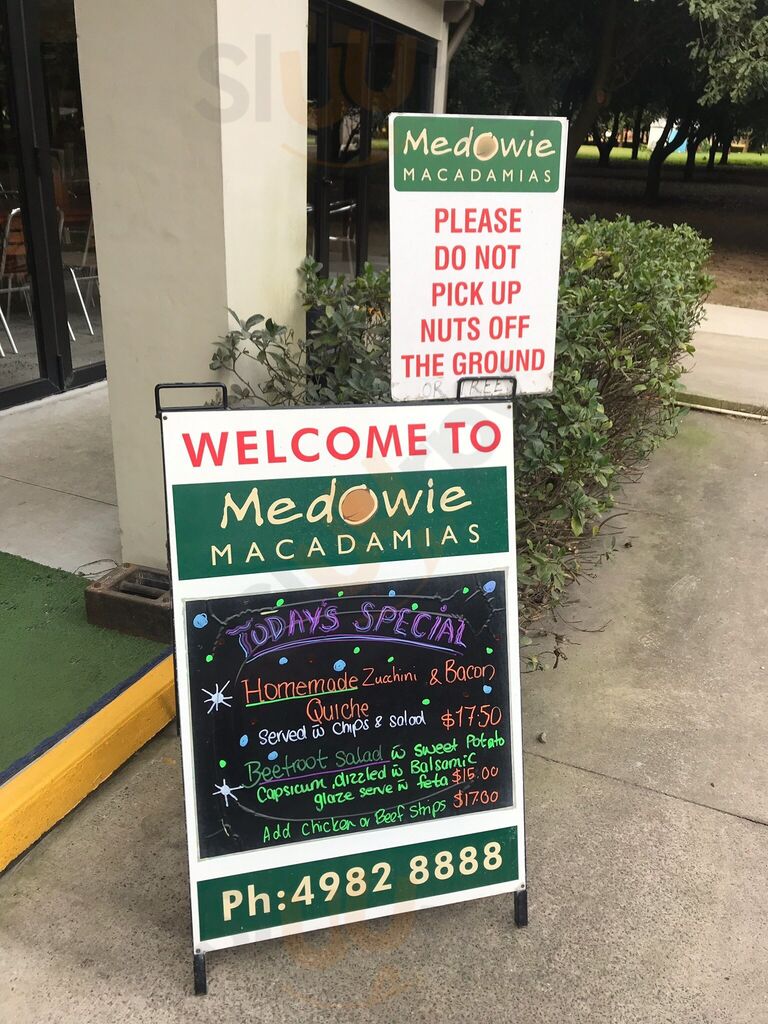 Medowie
MACADAMIAS
PLEASE
DO NOT
PICK UP
NUTS OFF
THE GROUND
OR TREE
WELCOME TO
Medowie
MACADAMIAS
TODAY'S SPECIAL
Homemade Zucchini & Bacon
Quiche
Served w̄ chips & salad $17.50
Beetroot Salad w̄ sweet Potato
Capsicum, drizzled w̄ Balsamic
glaze serve w̄ feta $15.00
Add chicken or Beef Strips $17.00
Ph:4982 8888